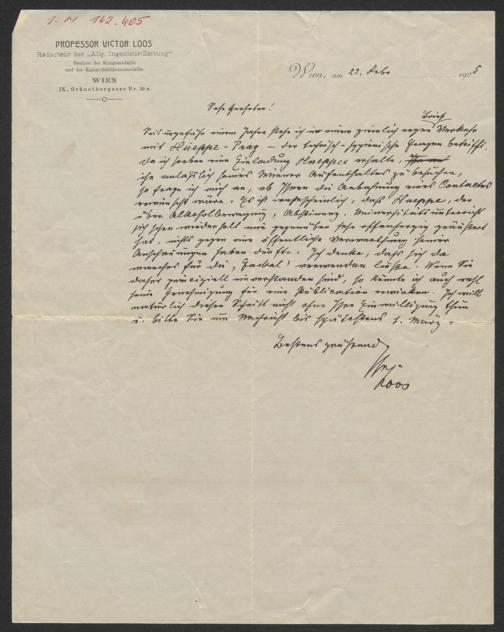 I. N. 162.405
PROFESSOR VICTOR LOOS
Redacteur der „Allg. Ingenieur-Zeitung"
Besitzer der Kriegsmedaille
und der Kaiser-Jubiläumsmedaille
WIEN
IX., Grünethorgasse Nr. 19 a.
Wien, am 22. Febr 1905
Sehr Geehrter!
Seit ungefähr einem Jahre stehe ich in einem ziemlich regen Brief Verkehr
mit Hueppe-Prag – der technisch-hygienische Fragen betrifft.
Da ich soeben eine Einladung Hueppes erhalte,
ihn anläßlich seines Wiener Aufenthaltes zu besuchen,
so frage ich mich an, ob Ihnen die Anbahnung eines Contactes
erwünscht wäre. Es ist wahrscheinlich, daß Hueppe, der
über Alkoholbewegung, Abstinenz, Universitätsunterricht
sich schon wiederholt mir gegenüber sehr offenherzig geäußert
hat, nichts gegen eine öffentliche Verwerthung seiner
Anschauungen haben dürfte. Ich denke, daß sich da
manches für die „Fackel" verwenden ließe. Wenn Sie
daher principiell einverstanden sind, so könnte ich auch wohl
seine Genehmigung für eine Publication erwirken. Ich will
natürlich diesen Schritt nicht ohne Ihre Einwilligung thun
u. bitte Sie um Nachricht bis spätestens 1. März.
Bestens grüßend
Loos